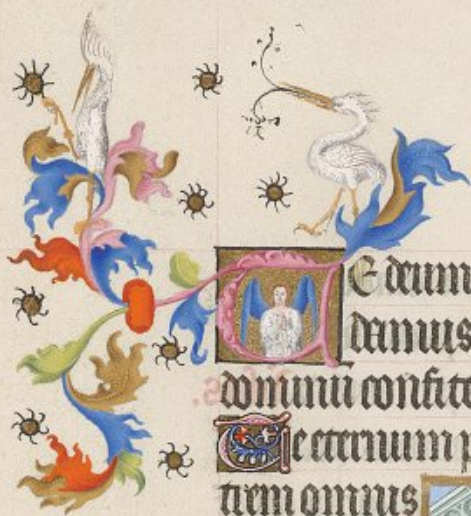 TE deum
damus
dominū confite
Te eternum p
trem omnis